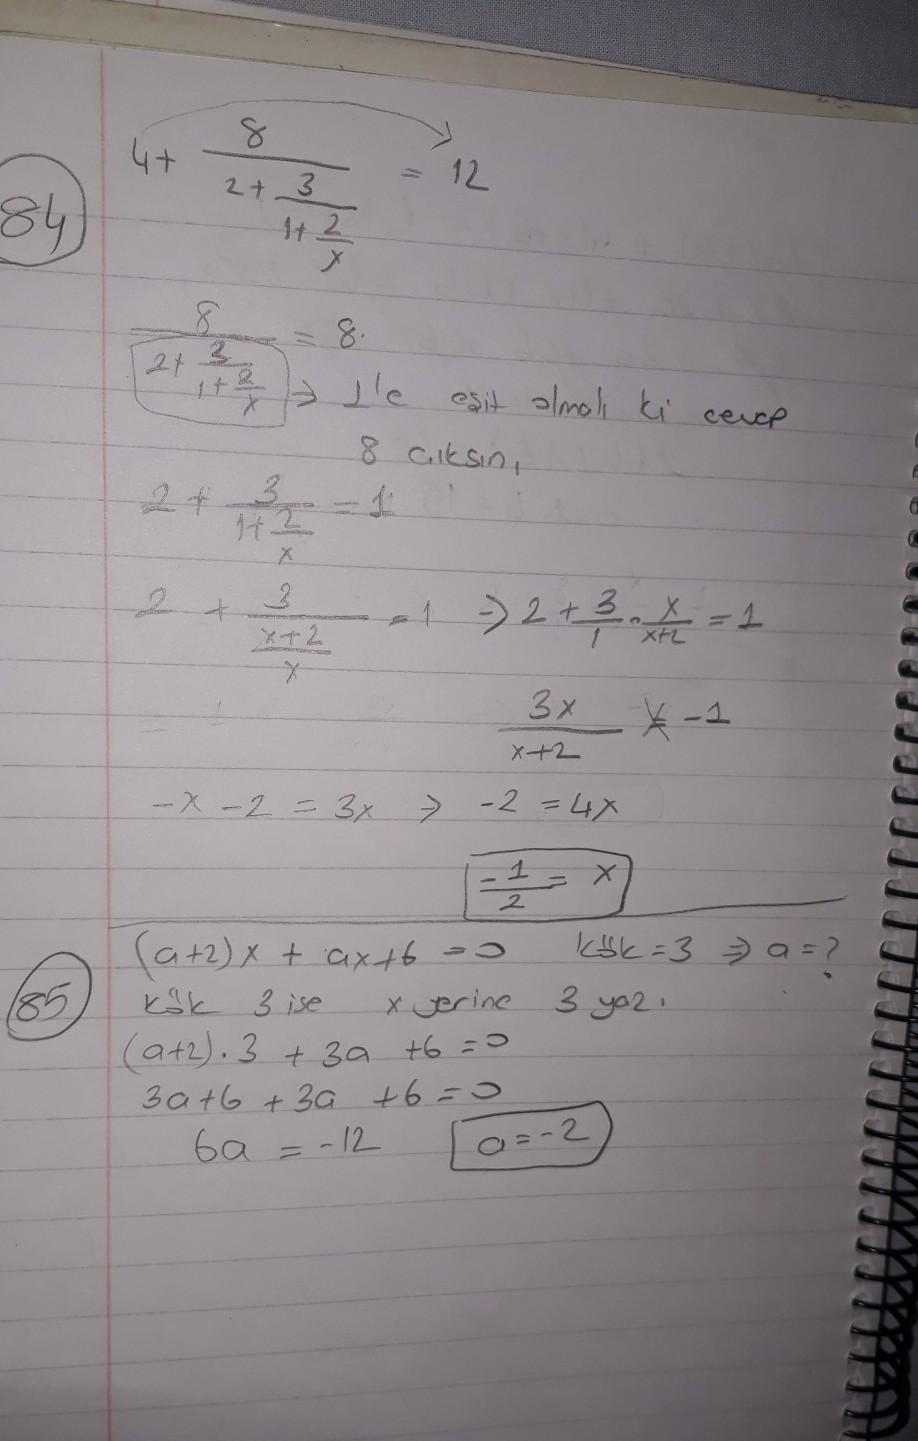 84
4+ 8/(2+ 3/(1+ 2/x)) = 12
8/(2+ 3/(1+ 2/x)) = 8. ⇒ 1'e eşit olmalı ki cevap
8 çıksın,
2 + 3/(1+ 2/x) = 1
2 + 3/((x+2)/x) = 1 ⇒ 2 + 3/1 · x/(x+2) = 1
3x/(x+2) = -1
-x - 2 = 3x ⇒ -2 = 4x
-1/2 = x
85
(a+2)x + ax+6 = 0 kök = 3 ⇒ a = ?
kök 3 ise x yerine 3 yaz.
(a+2).3 + 3a +6 = 0
3a+6 +3a +6 = 0
6a = -12 a = -2